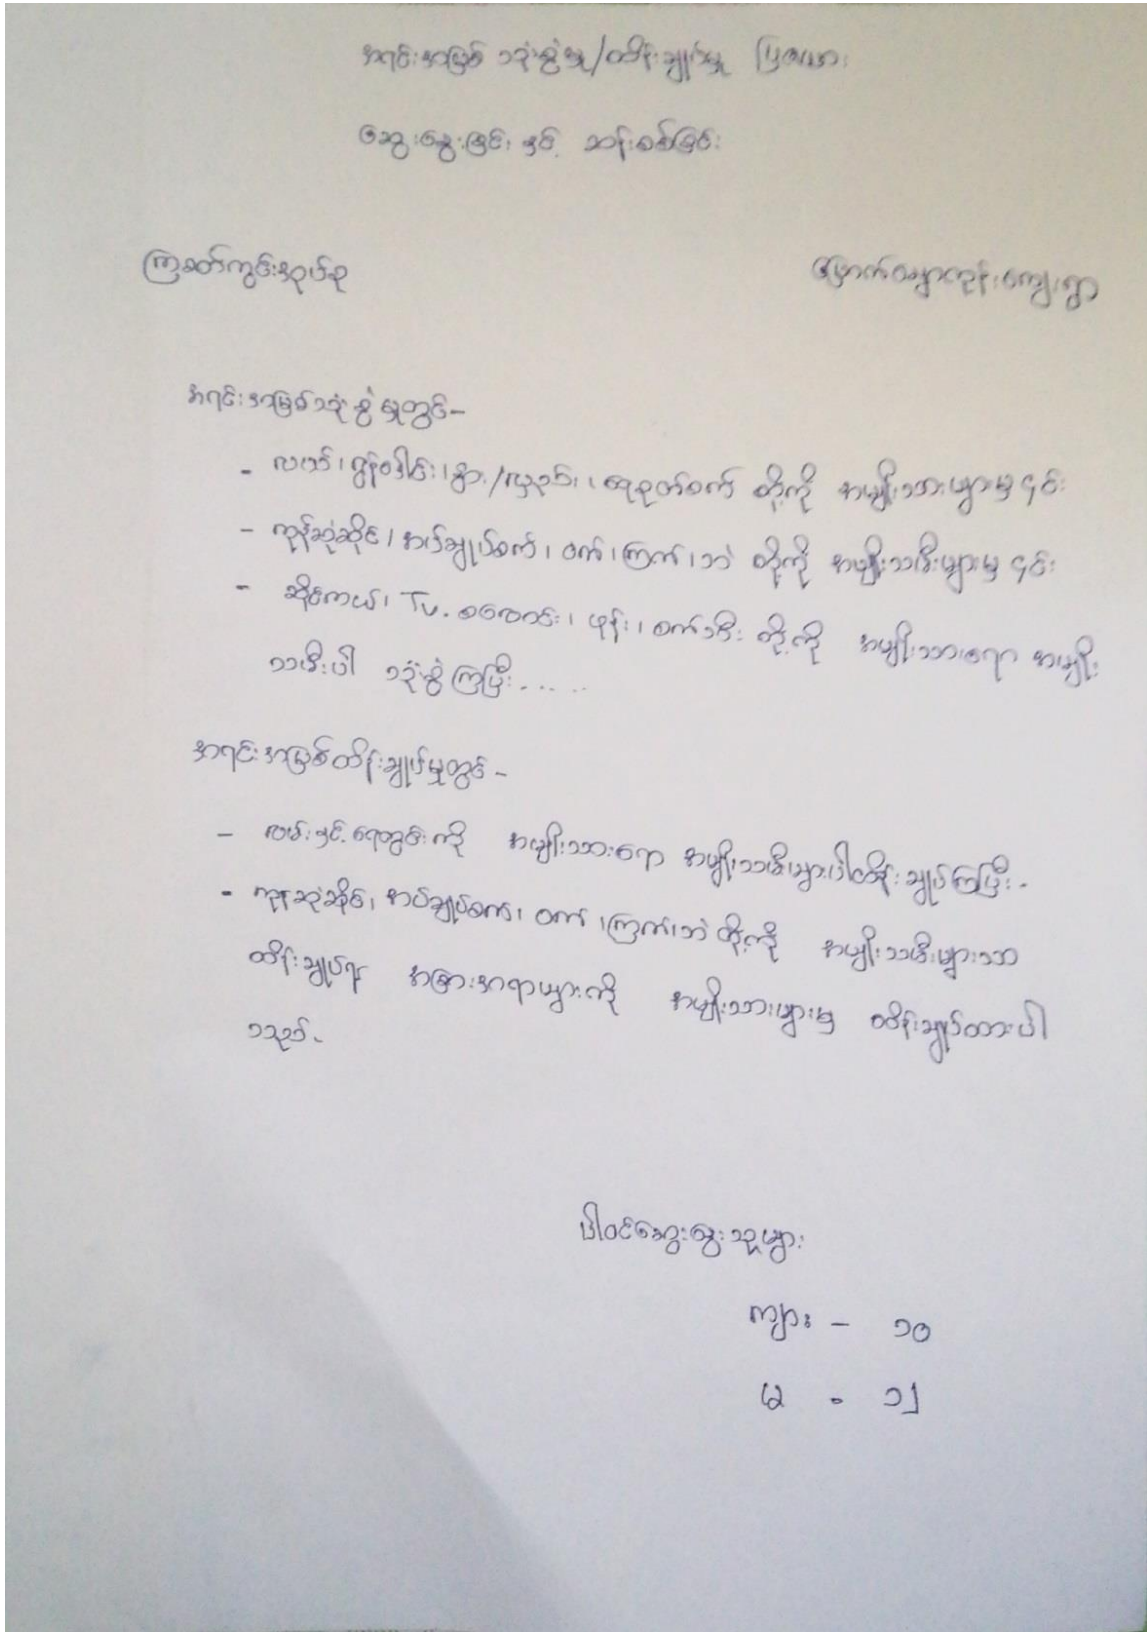 အရင်းအမြစ် သုံးစွဲမှု/ထိန်းချုပ်မှု ပြဇယား
ဆွေးနွေးခြင်း နှင့် ဆန်းစစ်ခြင်း
ကြခတ်ကွင်းအုပ်စု
မြောက်ချောကုန်းကျေးရွာ
အရင်းအမြစ်သုံးစွဲမှုတွင်-
- လယ်၊ ရွှံ့စေါင်း၊ နွား/လှည်း၊ ရေစုတ်စက် တို့ကို အမျိုးသားများမှ ၎င်း
- ကုန်ဆုံဆိုင်၊ အပ်ချုပ်စက်၊ ဝက်၊ ကြက်၊ ဘဲ တို့ကို အမျိုးသမီးများမှ ၎င်း
- ဆိုင်ကယ်၊ Tv. စလောင်း၊ ဖုန်း၊ စက်သီး တို့ကို အမျိုးသားရော အမျိုး
သမီးပါ သုံးစွဲကြပြီး.....
အရင်းအမြစ်ထိန်းချုပ်မှုတွင်-
- လမ်းနှင့် ရေတွင်းကို အမျိုးသားရော အမျိုးသမီးများပါထိန်းချုပ်ကြပြီး.
- ကုန်ဆုံဆိုင်၊ အပ်ချုပ်စက်၊ ဝက်၊ ကြက်၊ ဘဲ တို့ကို အမျိုးသမီးများသာ
ထိန်းချုပ်၍ အခြားအရာများကို အမျိုးသားများမှ ထိန်းချုပ်ထားပါ
သည်.
ပါဝင်ဆွေးနွေးသူများ
ကျား - ၁၀
မ - ၁၂